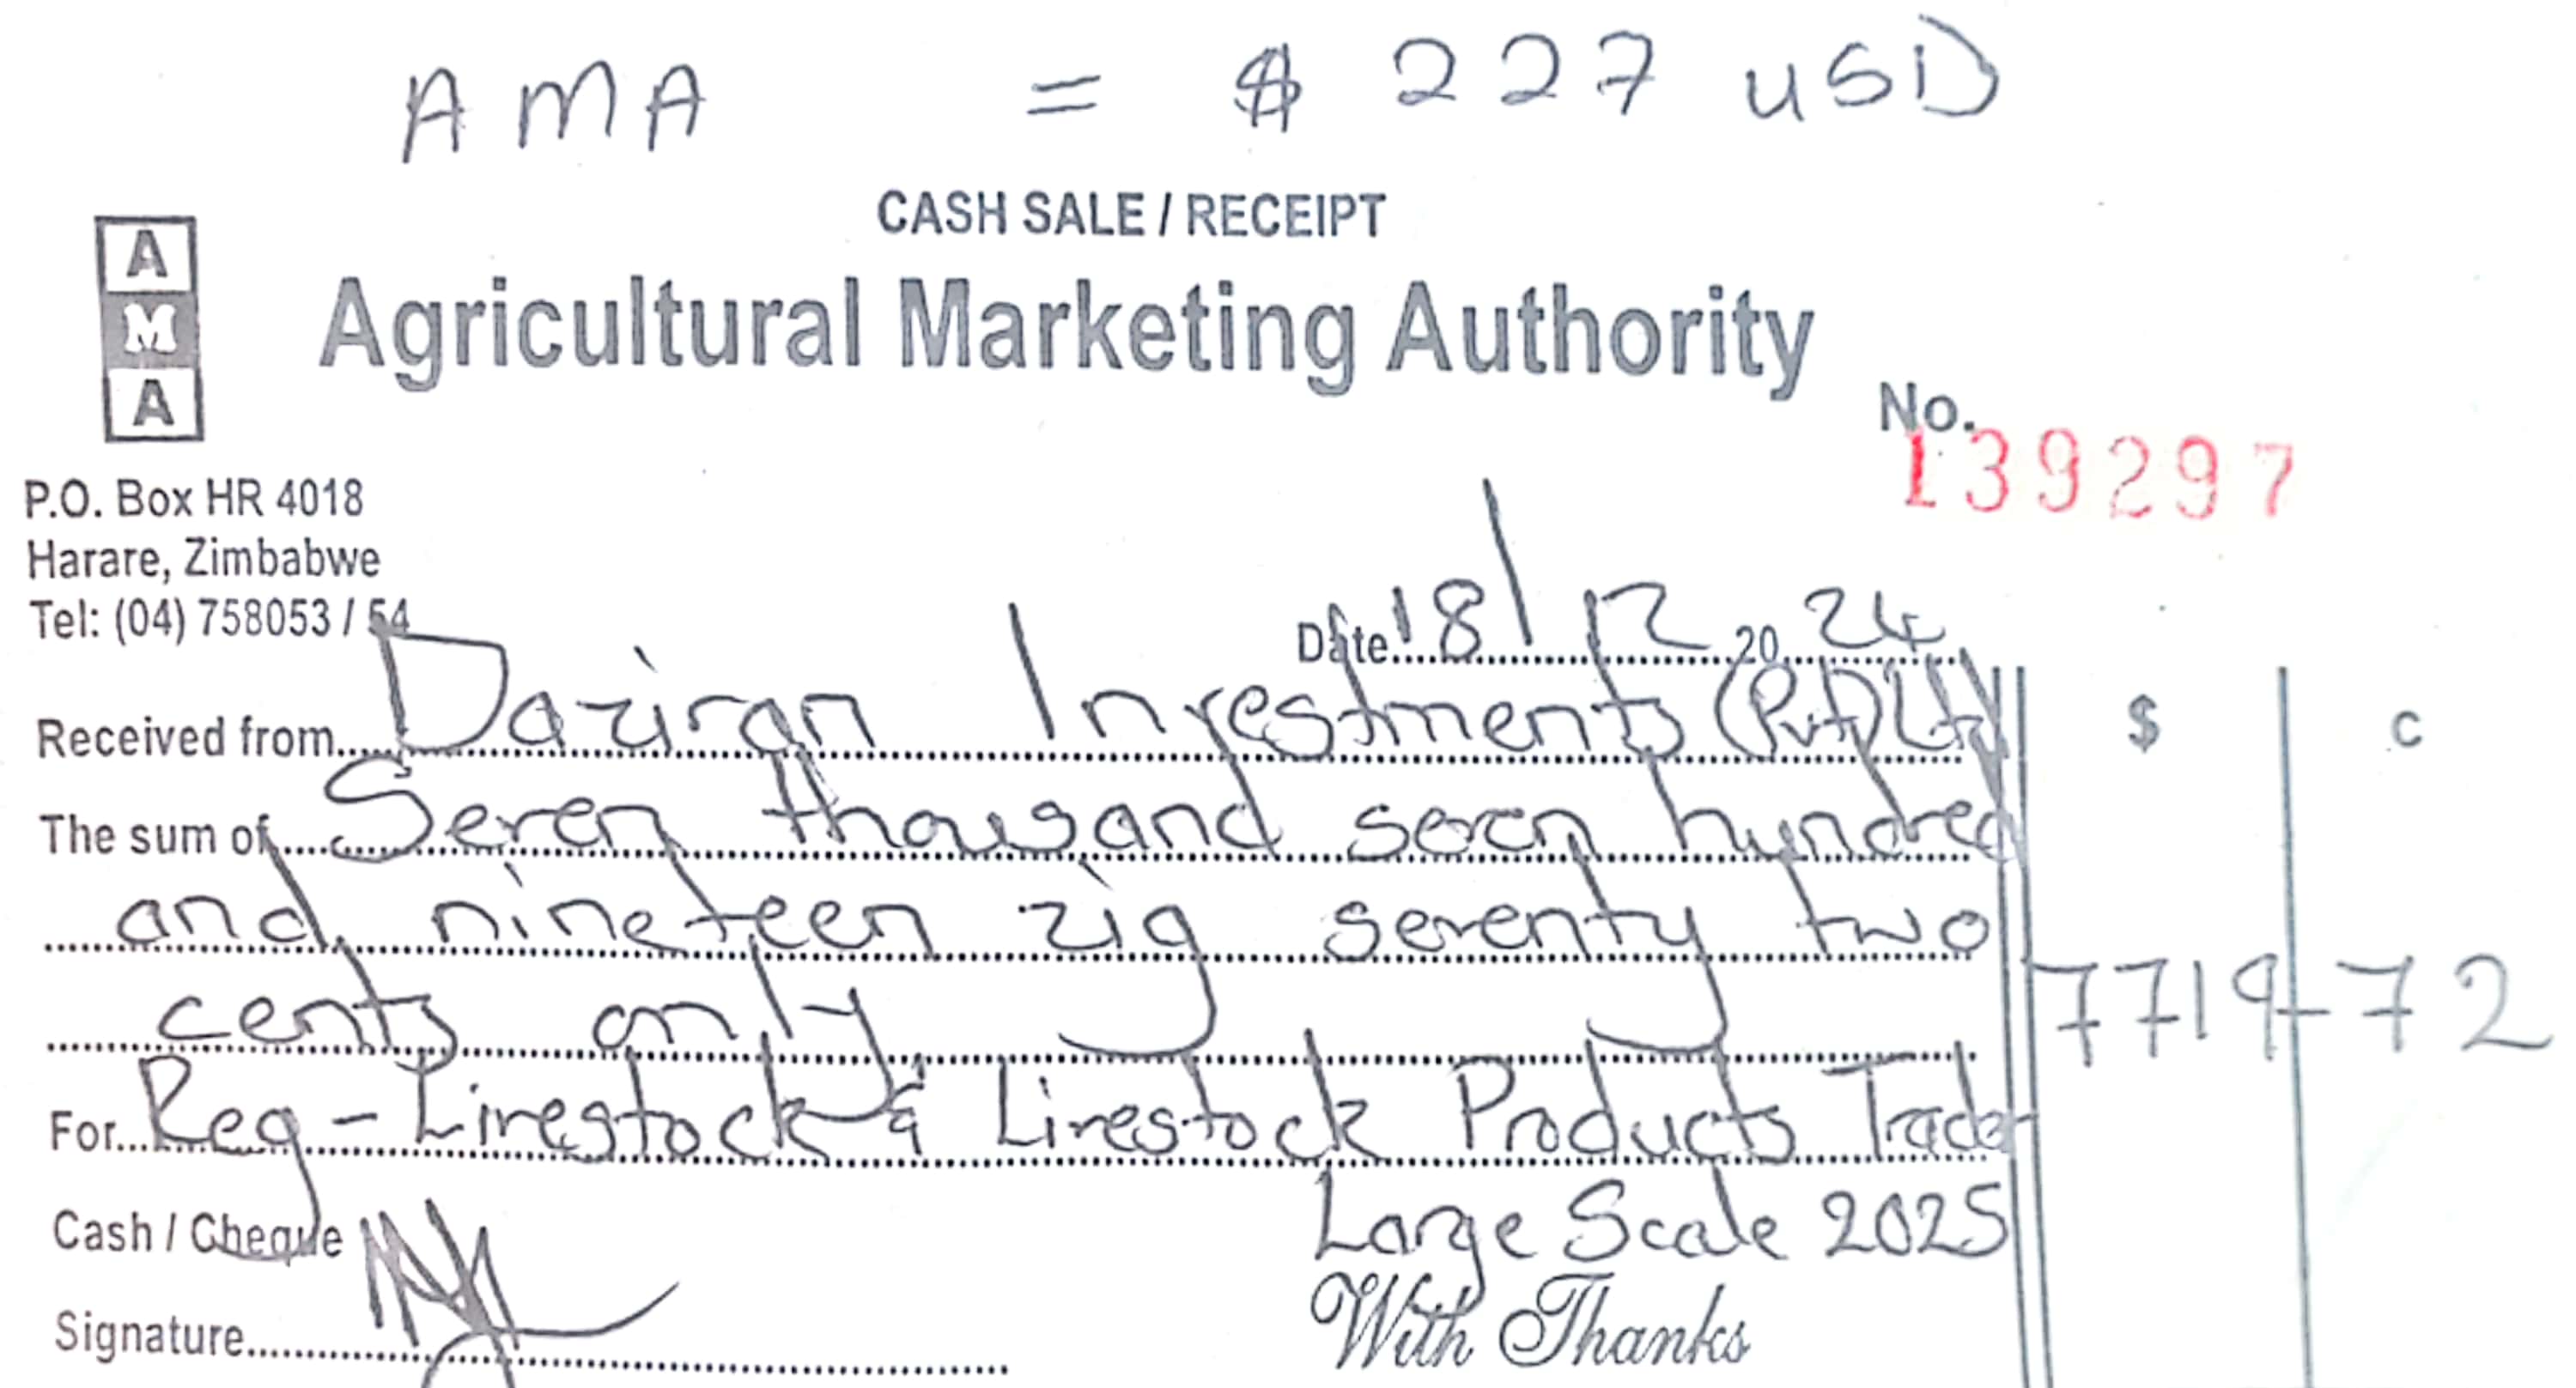 AMA = $ 227 USD
CASH SALE / RECEIPT
A
M
A
Agricultural Marketing Authority
No. 139297
P.O. Box HR 4018
Harare, Zimbabwe
Tel: (04) 758053 / 54
Date 18/12 20 24
Received from Daziran Investments (Pvt) Ltd
$ c
The sum of Seven thousand seven hundred
and nineteen zig seventy two
cents only
7719-72
For Reg - Livestock & Livestock Products Trader
Large Scale 2025
Cash / Cheque
With Thanks
Signature